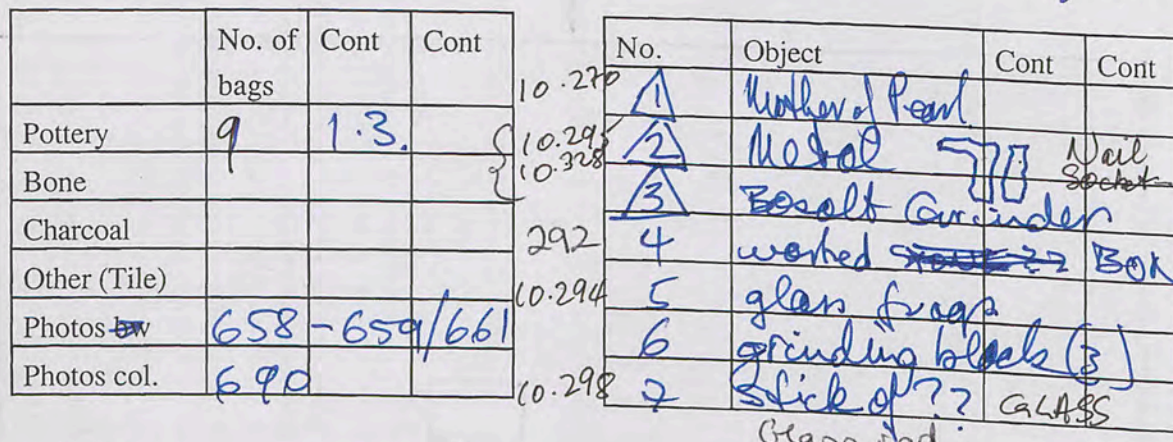 No. of bags Cont Cont
Pottery 9 1.3.
Bone
Charcoal
Other (Tile)
Photos bw 658 - 659/661
Photos col. 690
No. Object Cont Cont
10.270 1 Mother of Pearl
10.295 2 Metal Nail Socket
10.328 3 Basalt Grinder
292 4 worked BON
10.294 5 glass frags
6 grinding block (3)
10.298 7 Stick of ?? GLASS
Glass rod